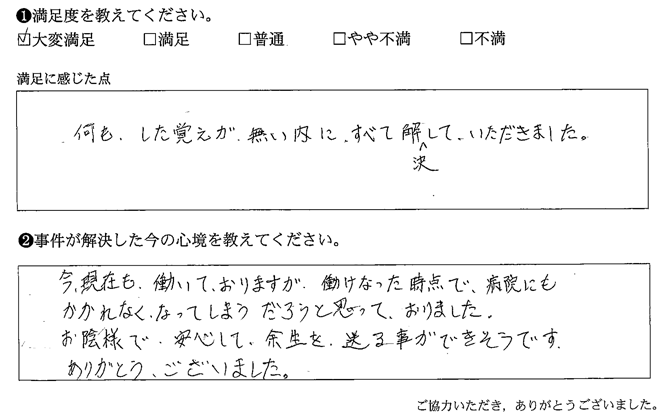 ❶満足度を教えてください。
☑大変満足 □満足 □普通 □やや不満 □不満
満足に感じた点
何も、した覚えが、無い内に、すべて解決して、いただきました。
❷事件が解決した今の心境を教えてください。
今、現在も、働いて、おりますが、働けなった時点で、病院にも
かかれなく、なってしまうだろうと思って、おりました。
お陰様で、安心して、余生を、送る事ができそうです
ありがとう、ございました。
ご協力いただき，ありがとうございました。